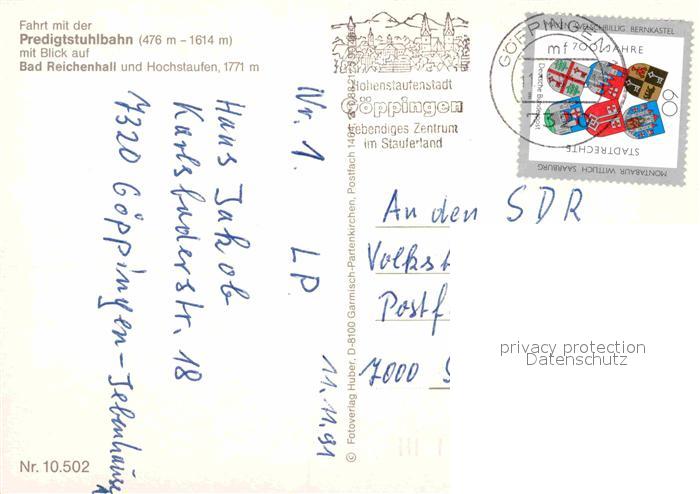 Fahrt mit der
Predigtstuhlbahn (476 m – 1614 m)
mit Blick auf
Bad Reichenhall und Hochstaufen, 1771 m
Hohenstaufenstadt
Göppingen
Lebendiges Zentrum
im Stauferland
GÖPPINGEN
mf
BERNKASTEL
700 JAHRE
60
Deutsche Bundespost
STADTRECHTE
MONTABAUR WITTLICH SAARBURG
Nr. 1. LP.
11.11.91
Hans Jakob
Karlsbaderstr. 18
7320 Göppingen-Jebenhausen
© Fotoverlag Huber, D-8100 Garmisch-Partenkirchen, Postfach
An den SDR
Volkst
Postf
7000 S
privacy protection
Datenschutz
Nr. 10.502